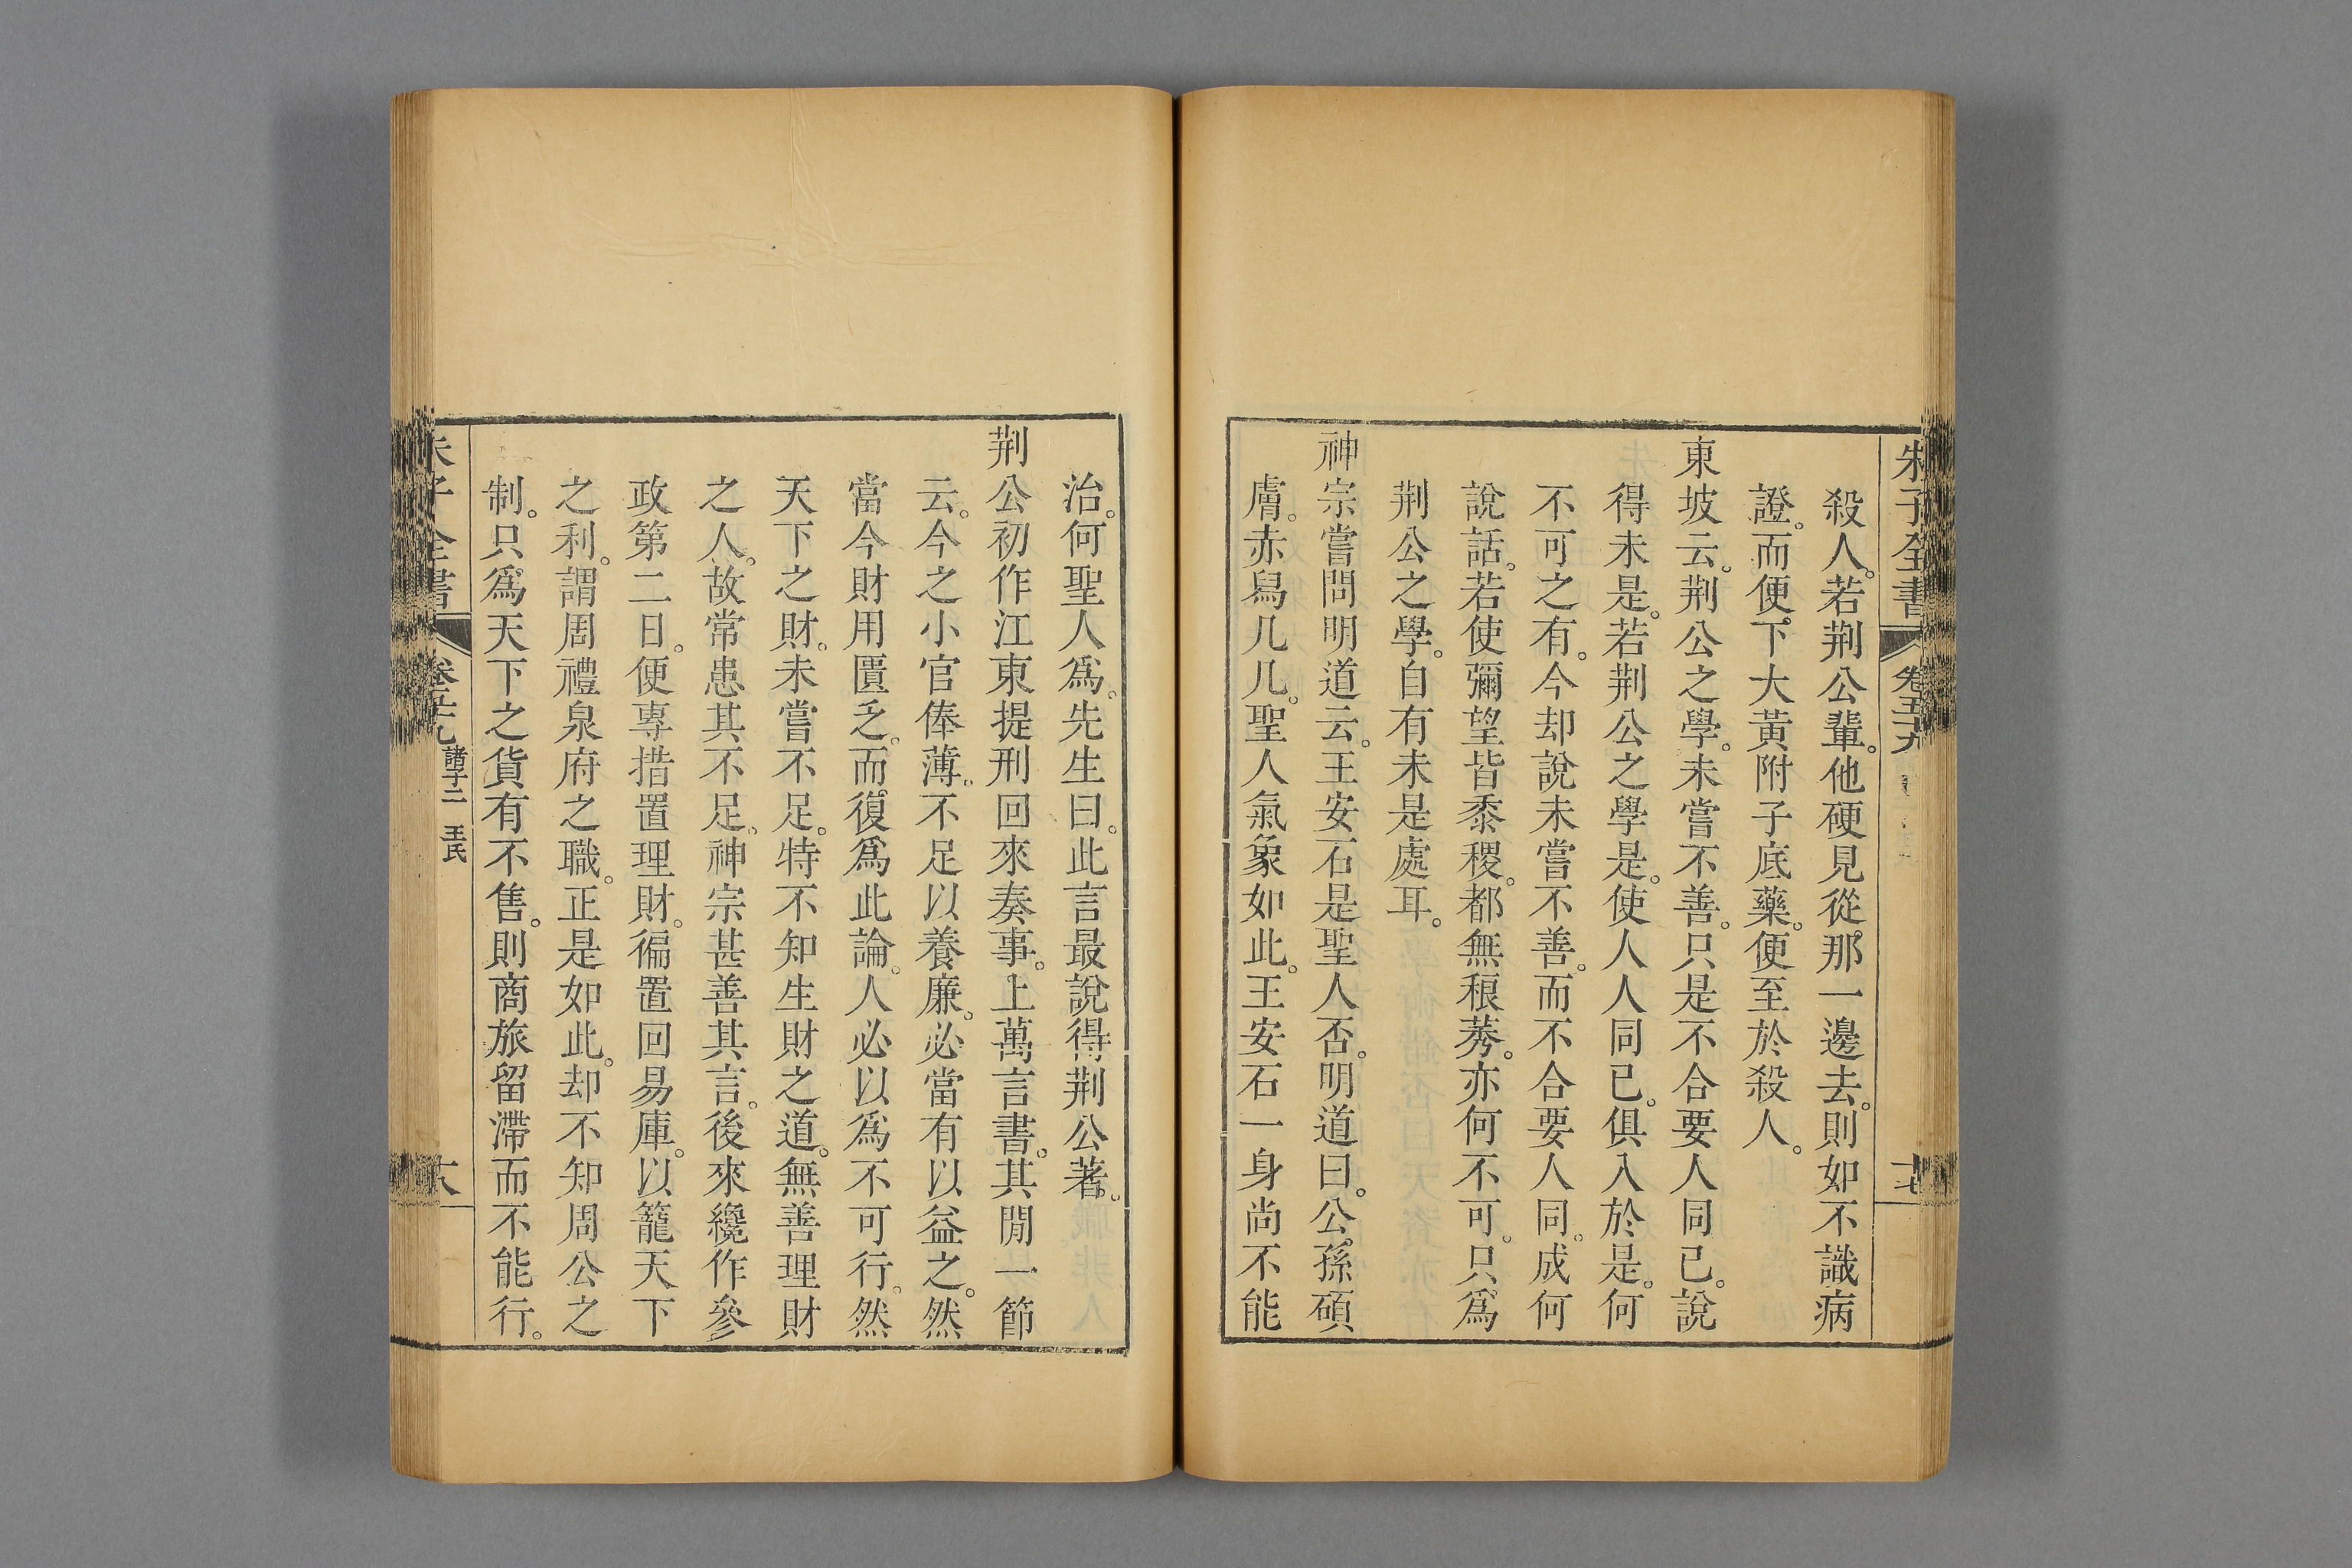 朱子全書 卷五十九
殺人。若荆公輩。他硬見從。那一邊去。則如不識病
證。而便下大黃附子底藥。便至於殺人。
東坡云。荆公之學。未嘗不善。只是不合要人同己。說
得未是。若荆公之學是。使人人同己。俱入於是。何
不可之有。今却說未嘗不善。而不合要人同。成何
說話。若使彌望皆黍稷。都無稂莠。亦何不可。只爲
荆公之學。自有未是處耳。
神宗嘗問明道云。王安石是聖人否。明道曰。公孫碩
膚。赤舄几几。聖人氣象如此。王安石一身尚不能
治。何聖人爲。先生曰。此言最說得荆公著。
荆公初作江東提刑回來奏事。上萬言書。其閒一節
云。今之小官俸薄。不足以養廉。必當有以益之。然
當今財用匱乏。而復爲此論。人必以爲不可行。然
天下之財。未嘗不足。特不知生財之道。無善理財
之人。故常患其不足。神宗甚善其言。後來纔作參
政第二日。便專措置理財。徧置回易庫。以籠天下
之利。謂周禮泉府之職。正是如此。却不知周公之
制。只爲天下之貨有不售。則商旅留滯而不能行。
朱子全書 卷五十九 諸子二 王氏